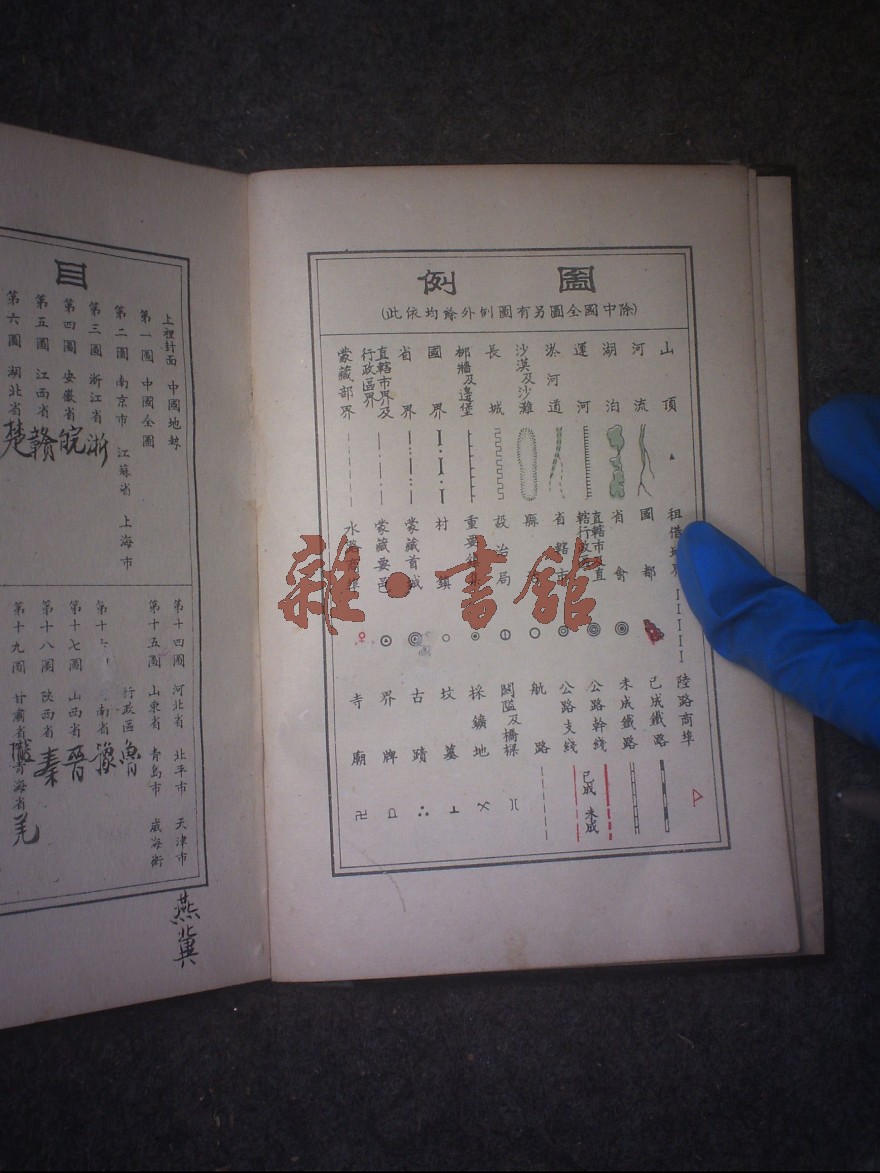 圖例
(除中國全圖另有圖例外餘均依此)
山頂
河流
湖泊
運河
淤河道
沙漠及沙灘
長城
柳牆及邊堡
國界
省界
直轄市界及行政區界
蒙藏部界
租借地界
國都
省會
直轄市及直轄行政區
省轄市
縣
設治局
重要
村鎮
蒙藏首城
蒙藏要邑
水路商埠
陸路商埠
已成鐵路
未成鐵路
公路幹綫
公路支綫
已成 未成
航路
關隘及橋樑
採鑛地
坟墓
古蹟
界牌
寺廟
雜·書館
目
上裡封面 中國地勢
第一圖 中國全圖
第二圖 南京市 江蘇省 上海市
第三圖 浙江省 浙
第四圖 安徽省 皖
第五圖 江西省 贛
第六圖 湖北省 楚
第十四圖 河北省 北平市 天津市
燕冀
第十五圖 山東省 青島市 威海衛
行政區 魯
南省 豫
第十七圖 山西省 晉
第十八圖 陝西省 秦
第十九圖 甘肅省 隴 青海省 羌